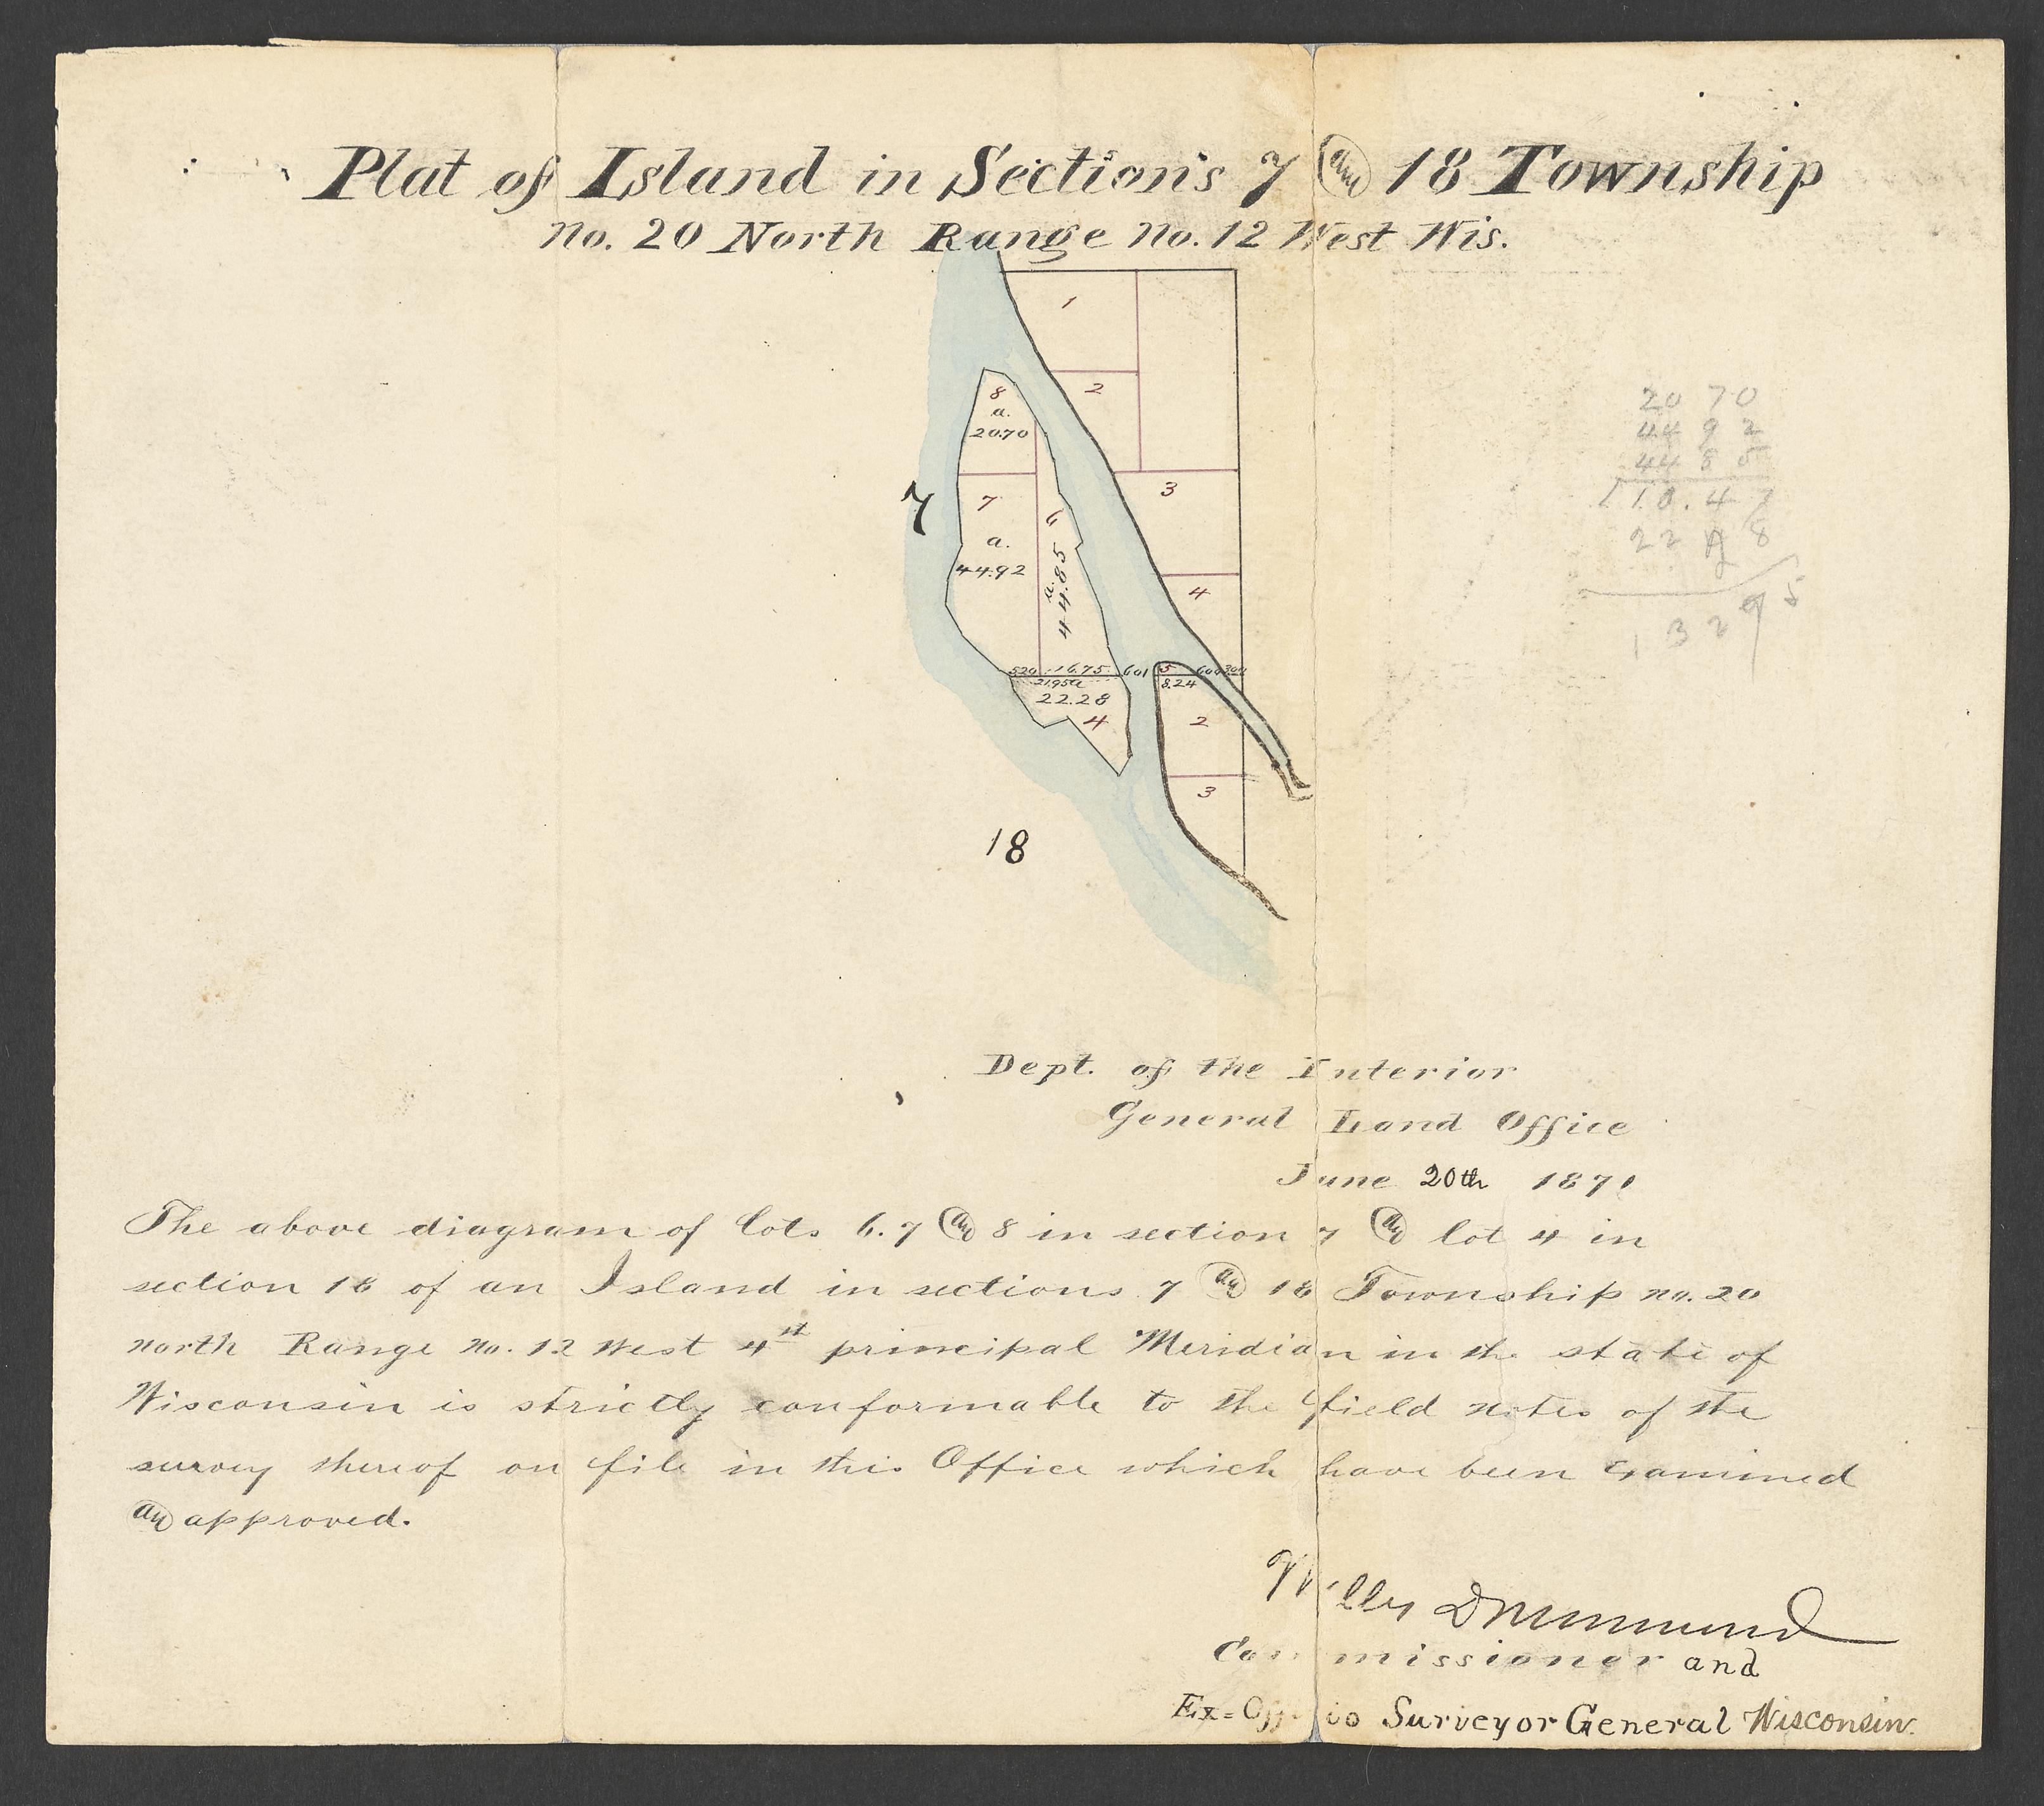 Plat of Island in Sections 7 and 18 Township
No. 20 North Range No. 12 West Wis.
1
2
8
a.
20.70
3
7
7
a.
44.92
6
a.
44.85
4
520 1675 601 5 600 300
2195 a
8.24
22.28
4
2
3
18
20 70
44 92
44 85
110.47
22 28
132 75
Dept. of the Interior
General Land Office
June 20th 1871
The above diagram of lots 6. 7 and 8 in section 7 and lot 4 in
section 18 of an Island in sections 7 and 18 Township no. 20
north Range no. 12 West 4st principal Meridian in the state of
Wisconsin is strictly conformable to the field notes of the
survey thereof on file in this Office which have been examined
and approved.
Willis Drummond
Commissioner and
Ex-Officio Surveyor General Wisconsin.